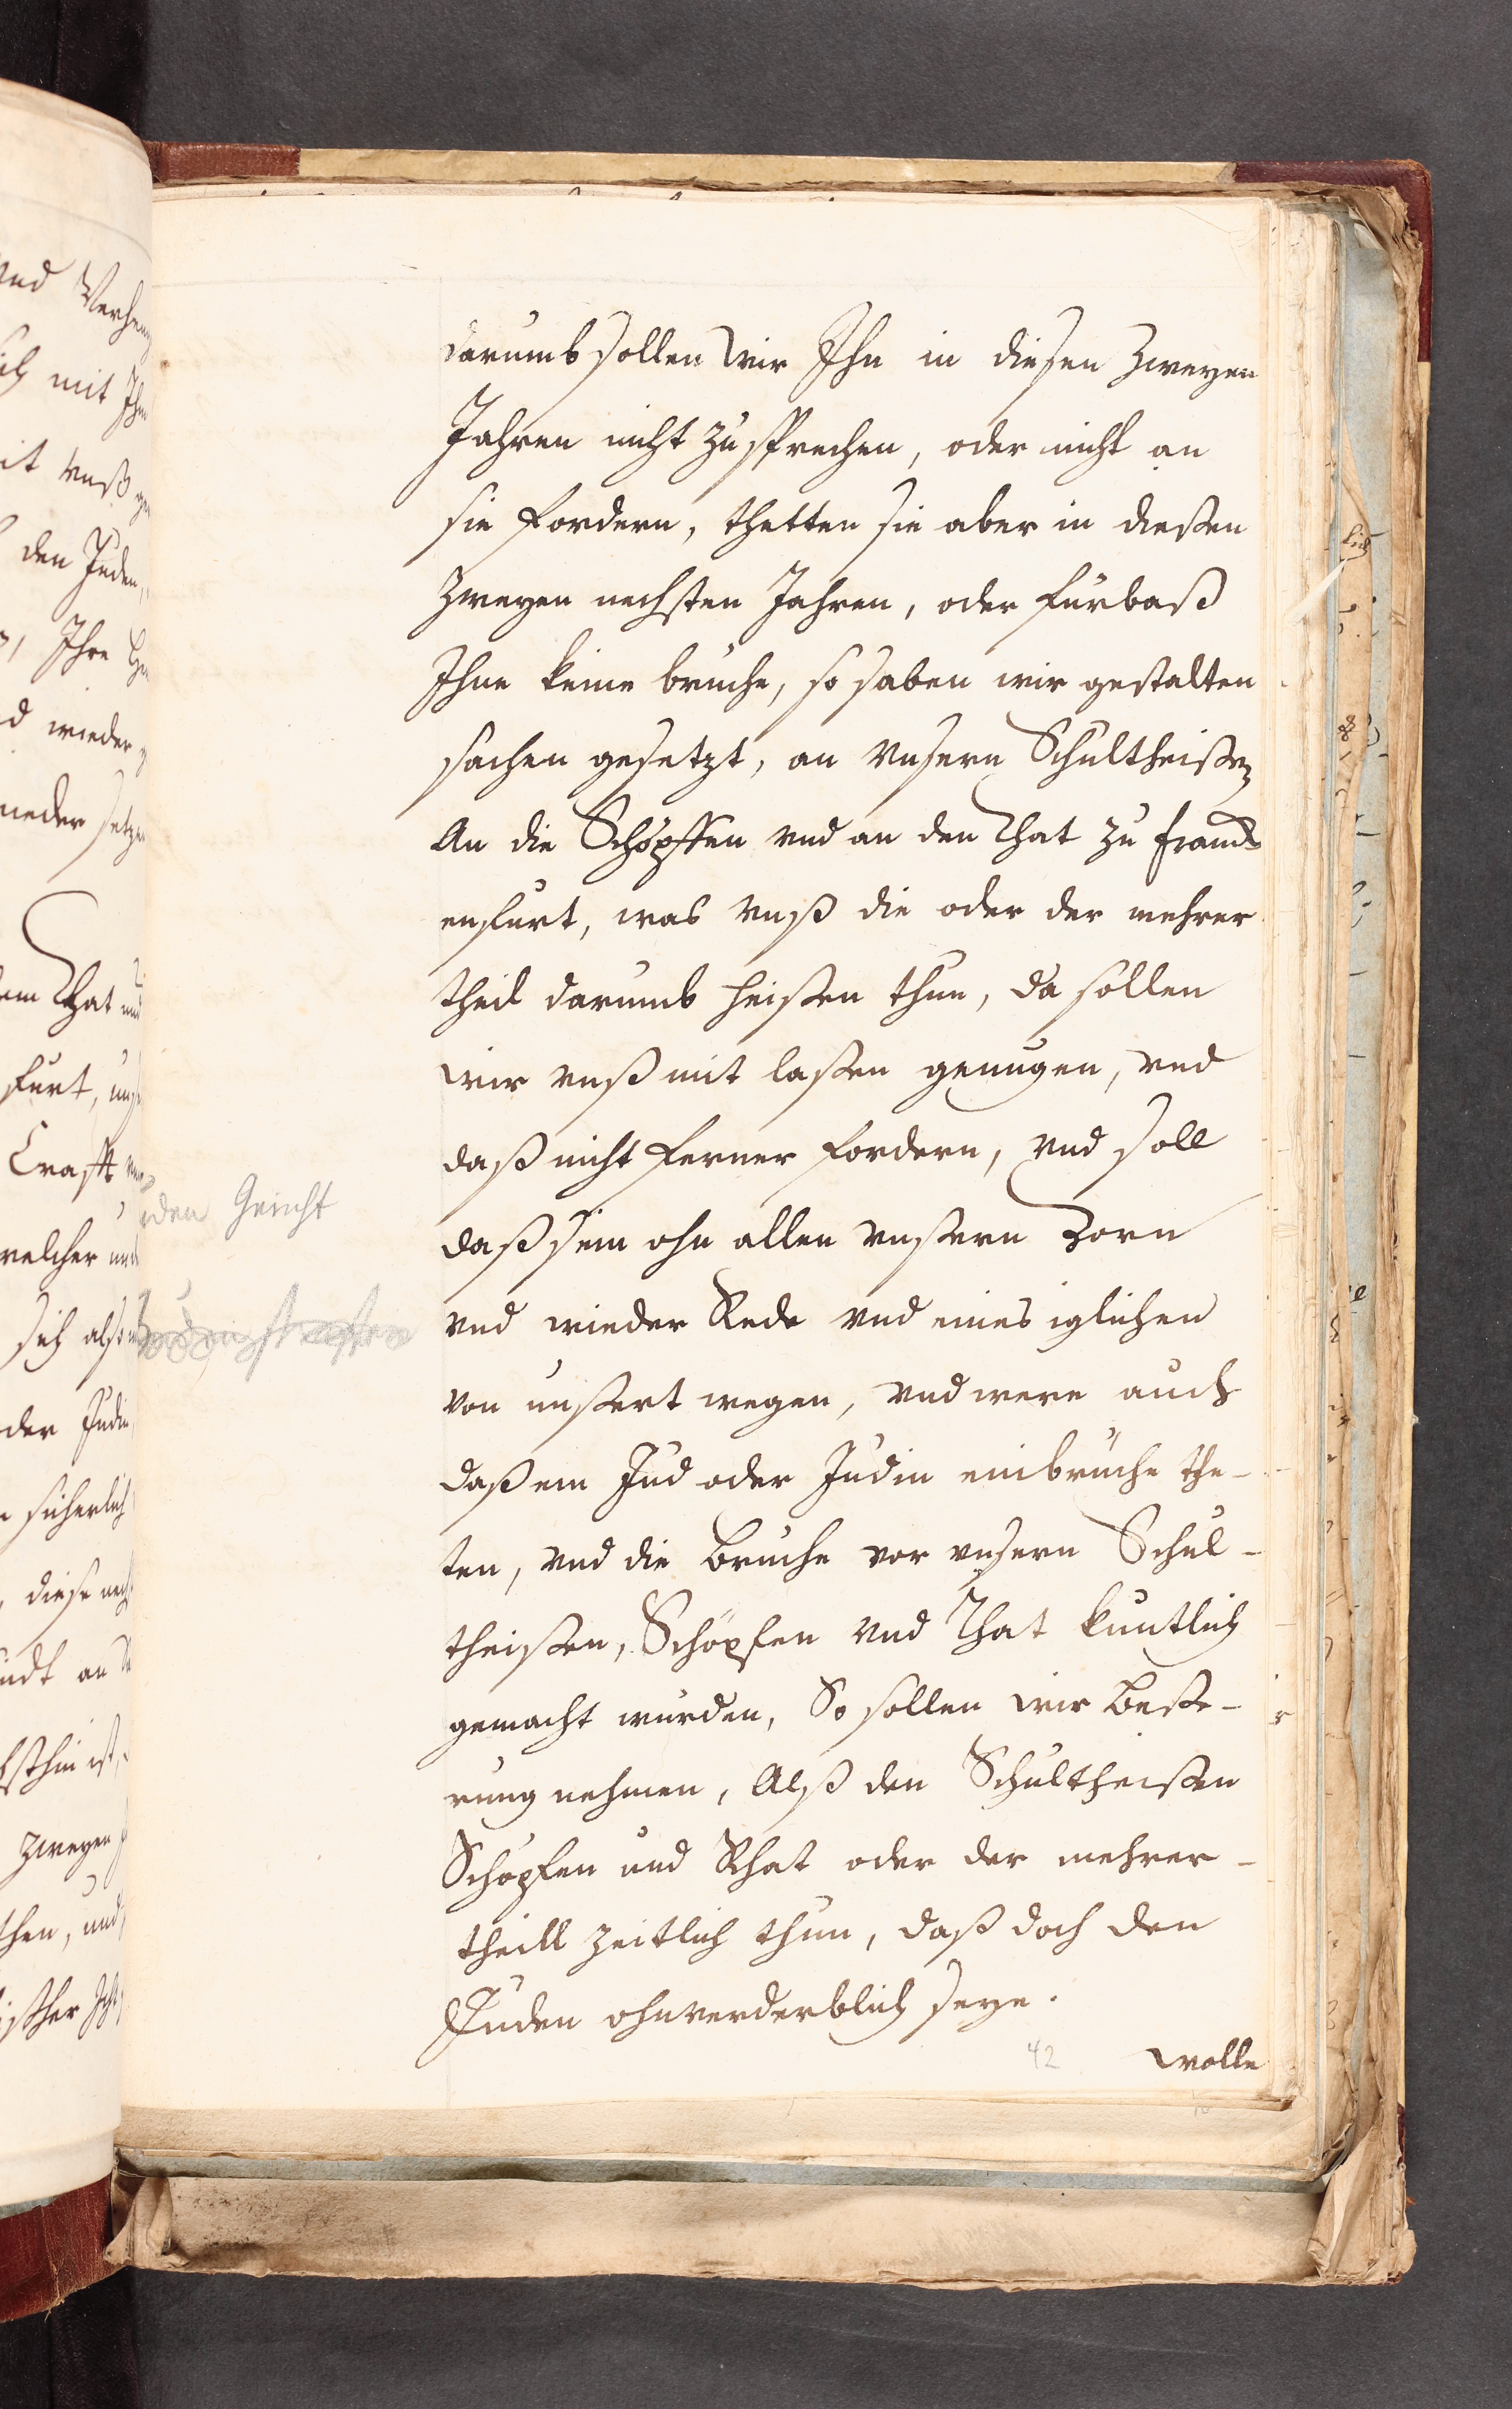 darumb sollen wir Ihn in diesen zweyen
Jahren nicht zusprechen, oder nicht an
sie fordern, thetten sie aber in dießen
zweyen nechsten Jahren, oder fürbaß
Ihne keine bruche, so haben wir gestalten
sachen gesetzt, an vnsern Schultheißen
An die Schöpffen vnd an den Rhat zu Franck
enfurt, was vnß die oder der mehrer
theil darumb heißen thun, da sollen
wir vnß mit laßen genugen, vnd
daß nicht ferner fordern, vnd soll
daß sein ohn allen vnßern Zorn
vnd wieder Rede vnd eines iglichen
von unßert wegen, vnd were auch
daß ein Jud oder Judin einbrüche the-
ten, vnd die Bruche vor vnsern Schul-
theißen, Schöpfen vnd Rhat kuntlich
gemacht wurden, So sollen wir beße-
rung nehmen, Alß den Schultheißen
Schöpfen und Rhat oder der mehrer-
theill zeitlich thun, daß doch den
Juden ohnverderblich seye.
42 wolle
den Gericht
mit Ihn
den Juden,
Ihre
wieder
Rhat und
furt,
Crafft
welcher
sich also
der Judin
sicherlich
diese nech
an
zweyen